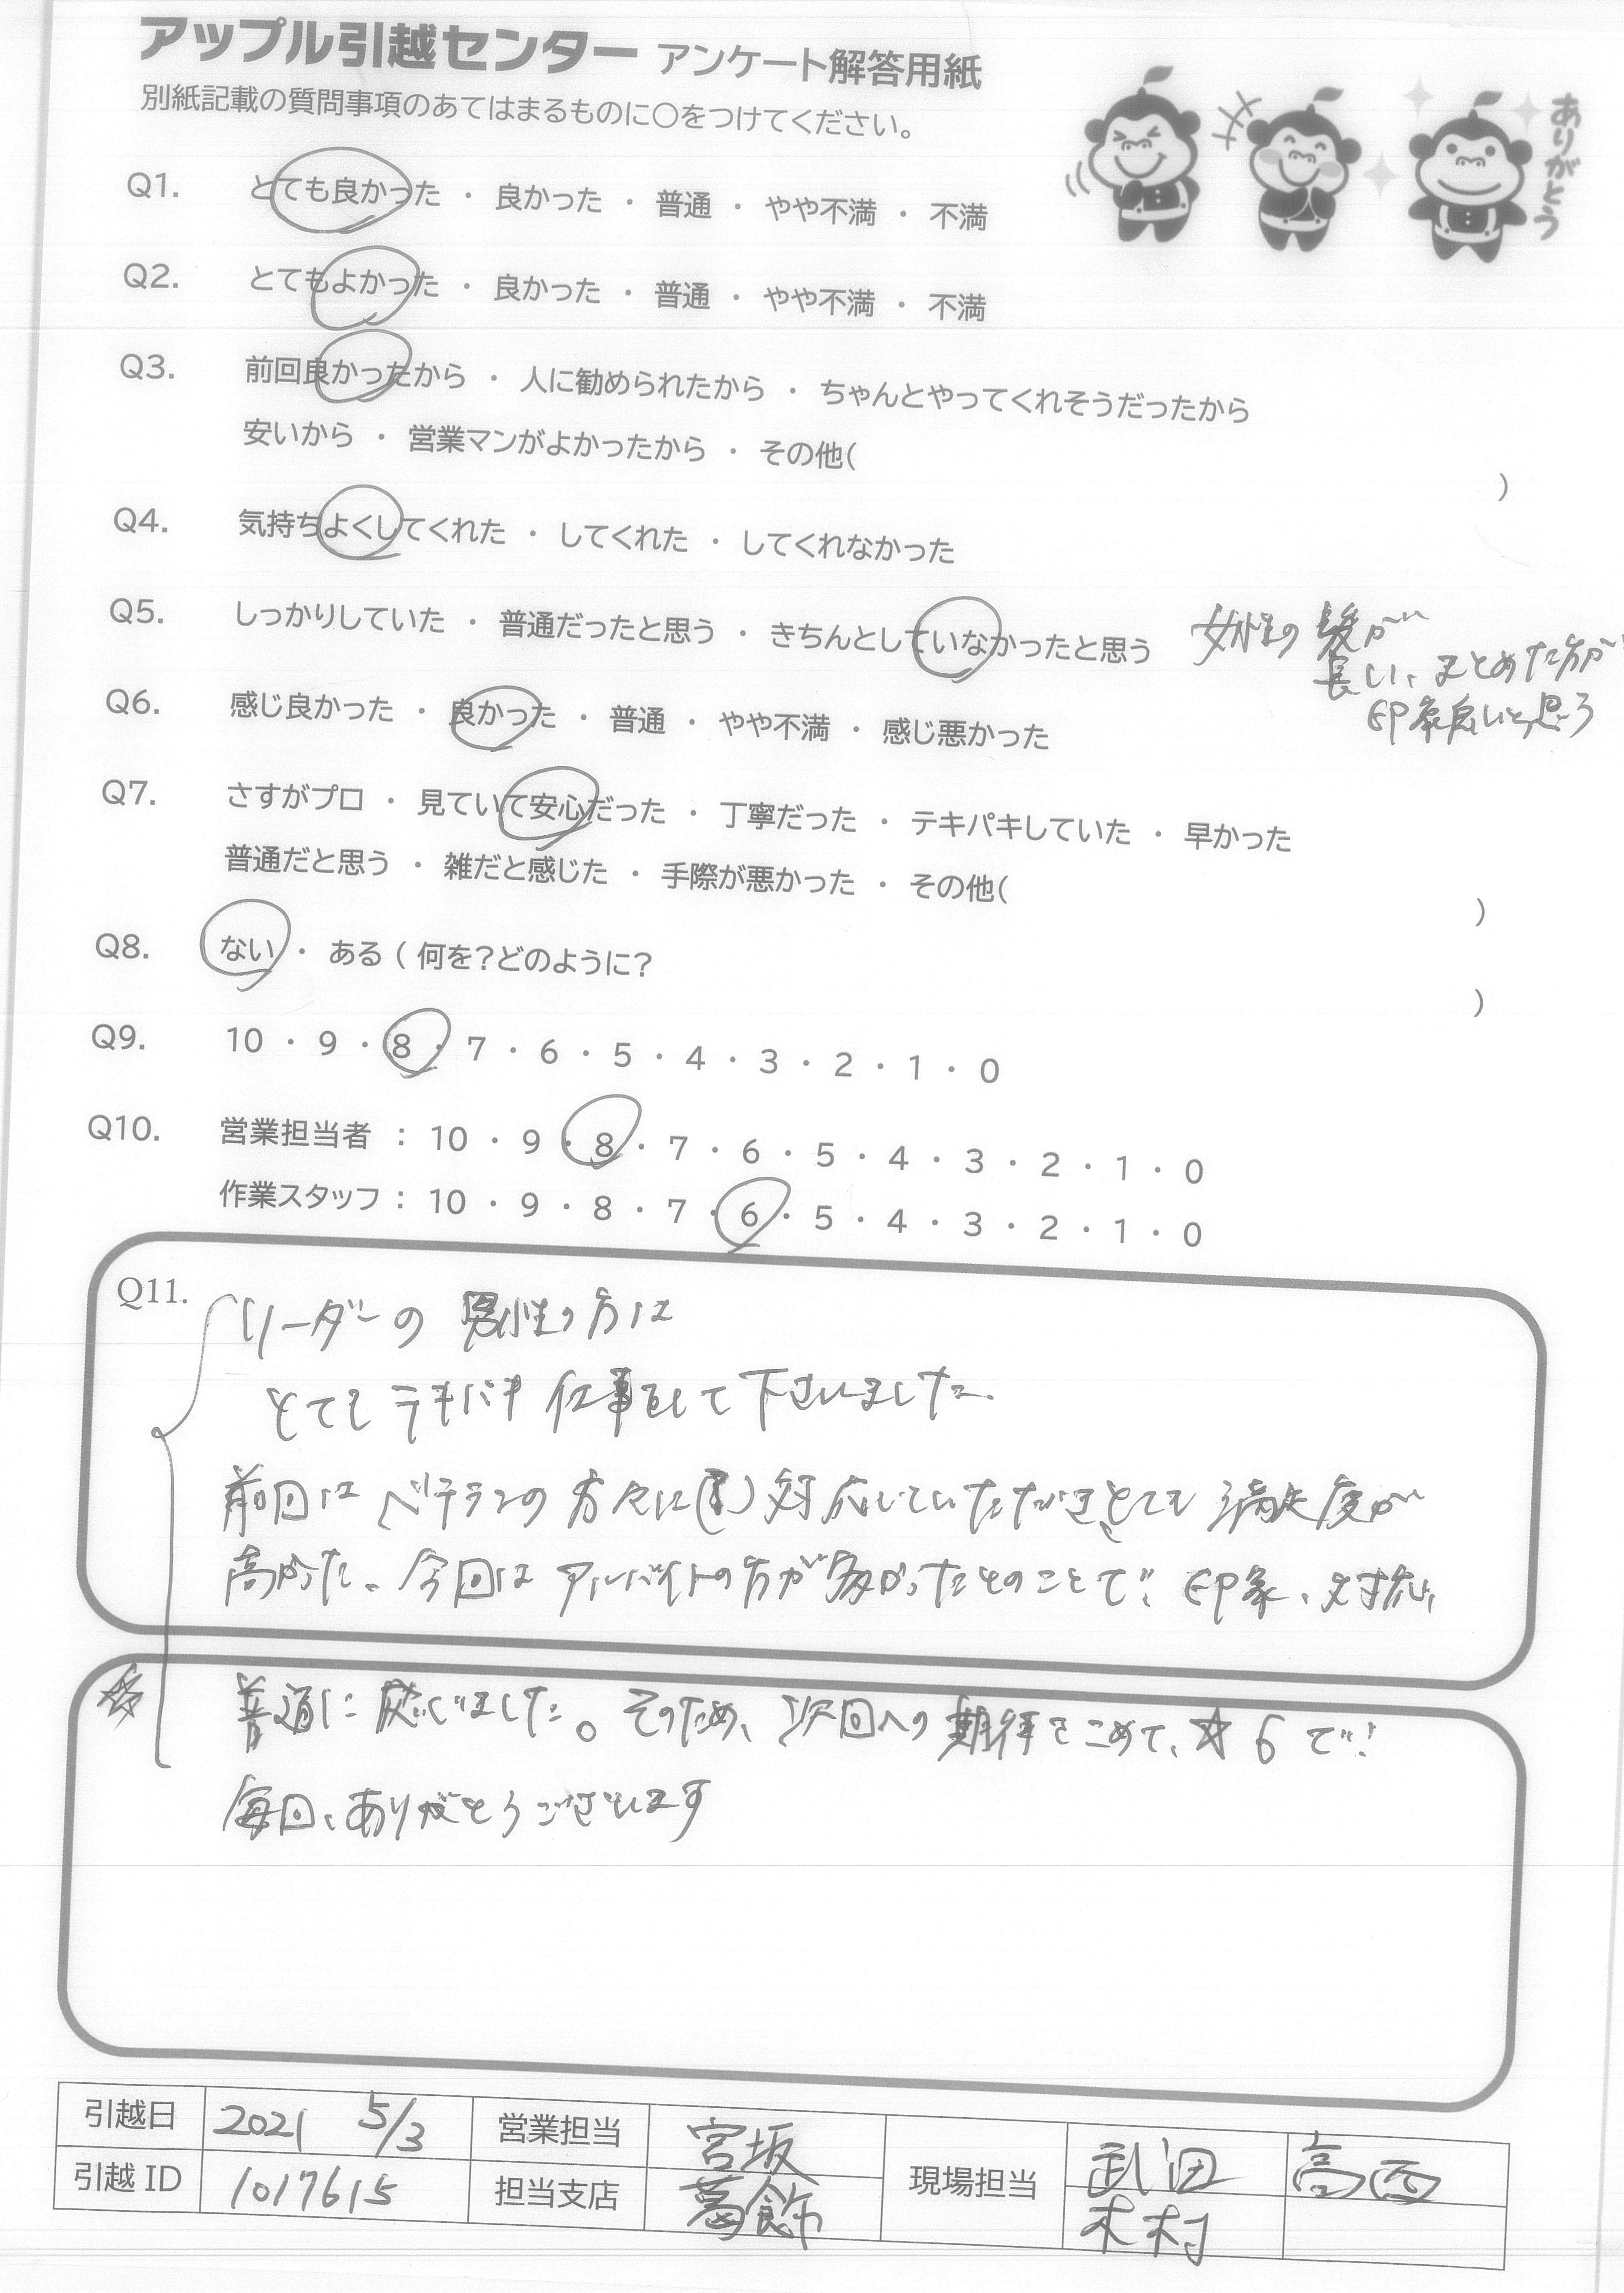 アップル引越センター アンケート解答用紙
別紙記載の質問事項のあてはまるものに○をつけてください。
ありがとう
Q1. とても良かった ・ 良かった ・ 普通 ・ やや不満 ・ 不満
Q2. とてもよかった ・ 良かった ・ 普通 ・ やや不満 ・ 不満
Q3. 前回良かったから ・ 人に勧められたから ・ ちゃんとやってくれそうだったから
安いから ・ 営業マンがよかったから ・ その他( )
Q4. 気持ちよくしてくれた ・ してくれた ・ してくれなかった
Q5. しっかりしていた ・ 普通だったと思う ・ きちんとしていなかったと思う
女性の髪が
長い、まとめた方が
印象良いと思う
Q6. 感じ良かった ・ 良かった ・ 普通 ・ やや不満 ・ 感じ悪かった
Q7. さすがプロ ・ 見ていて安心だった ・ 丁寧だった ・ テキパキしていた ・ 早かった
普通だと思う ・ 雑だと感じた ・ 手際が悪かった ・ その他( )
Q8. ない ・ ある ( 何を?どのように? )
Q9. 10 ・ 9 ・ 8 ・ 7 ・ 6 ・ 5 ・ 4 ・ 3 ・ 2 ・ 1 ・ 0
Q10. 営業担当者 : 10 ・ 9 ・ 8 ・ 7 ・ 6 ・ 5 ・ 4 ・ 3 ・ 2 ・ 1 ・ 0
作業スタッフ : 10 ・ 9 ・ 8 ・ 7 ・ 6 ・ 5 ・ 4 ・ 3 ・ 2 ・ 1 ・ 0
Q11. リーダーの男性の方は
とてもテキパキ仕事をして下さいました。
前回はベテランの方々に対応していただきとても満足度が
高かった。今回はアルバイトの方が多かったとのことで、印象、対応、
☆ 普通に感じました。そのため、次回への期待をこめて、☆6で!
毎回、ありがとうございます
引越日 2021 5/3 営業担当 宮坂 現場担当 武田 高西
引越 ID 1017615 担当支店 葛飾 木村